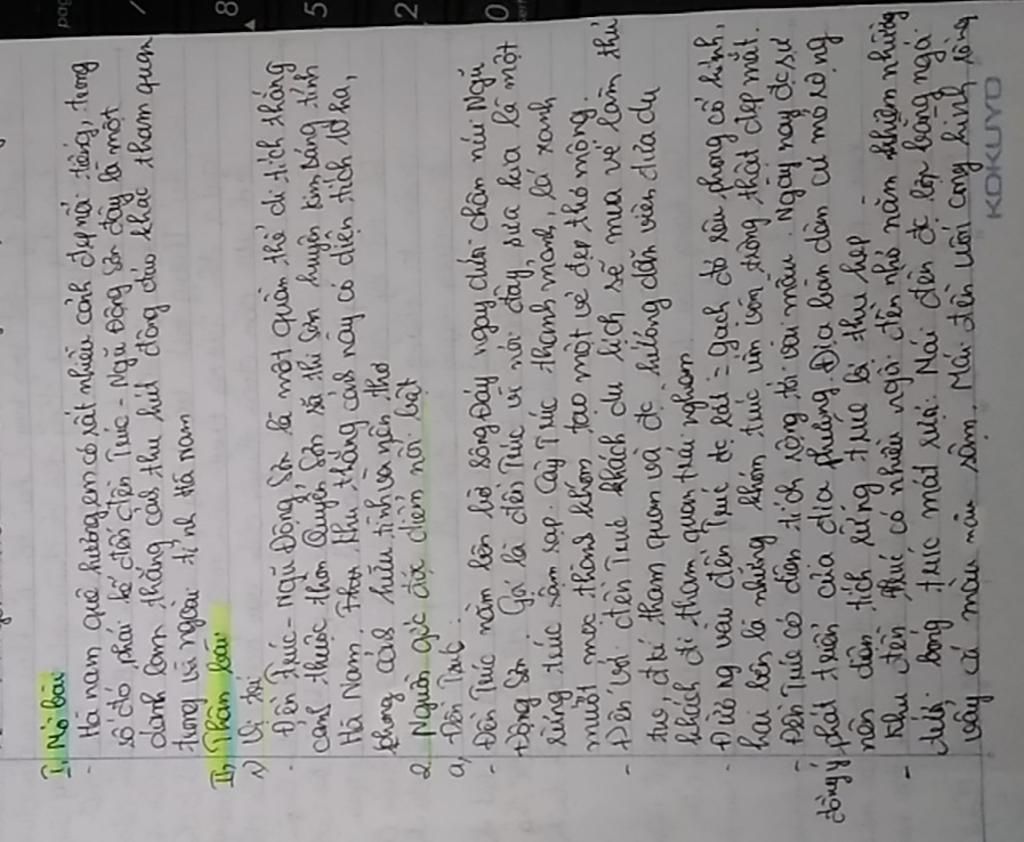 I, Mở bài
- Hà nam quê hương em có rất nhiều cảnh đẹp nổi tiếng, trong
số đó phải kể đến đền Trúc - Ngũ Động Sơn đây là một
danh lam thắng cảnh thu hút đông đảo khác tham quan
trong và ngoài tỉnh Hà nam
II, Thân bài
1) Vị trí
- Đền Trúc - Ngũ Động Sơn là một quần thể di tích thắng
cảnh thuộc thôn Quyển Sơn xã thi Sơn huyện kim bảng tỉnh
Hà Nam. Khu thắng cảnh này có diện tích 10 ha,
phong cảnh hữu tình và nên thơ
2 Nguồn gốc đặc điểm nổi bật
a, Đền Trúc
- Đền Trúc nằm bên bờ sông Đáy ngay dưới chân núi Ngũ
Động Sơn. Gọi là đền Trúc vì nơi đây, xưa kia là một
rừng trúc rậm rạp. Cây Trúc thanh mảnh, lá xanh
mướt mọc thành khóm tạo một vẻ đẹp thơ mộng.
- Đến với đền Trúc khách du lịch sẽ mua vé làm thủ
tục, để tham quan và đc hướng dẫn viên đưa du
khách đi tham quan trải nghiệm
- Đường vào đền Trúc đc lát = gạch đỏ rêu phong cổ kính,
hai bên là những khóm trúc um trông thật đẹp mắt.
- Đền Trúc có diện tích rộng tới vài mẫu. Ngày nay đc sự
đồng ý phát triển của địa phương. Địa bàn dân cư mở rộng
nên diện tích rừng trúc bị thu hẹp
- Khu đền trúc có nhiều ngôi đền nhỏ nằm khiêm nhường
dưới bóng trúc mát rượi. Mái đền đc lợp bằng ngói
vảy cá màu nâu sậm. Mái đền uốn cong hình rồng
KOKUYO